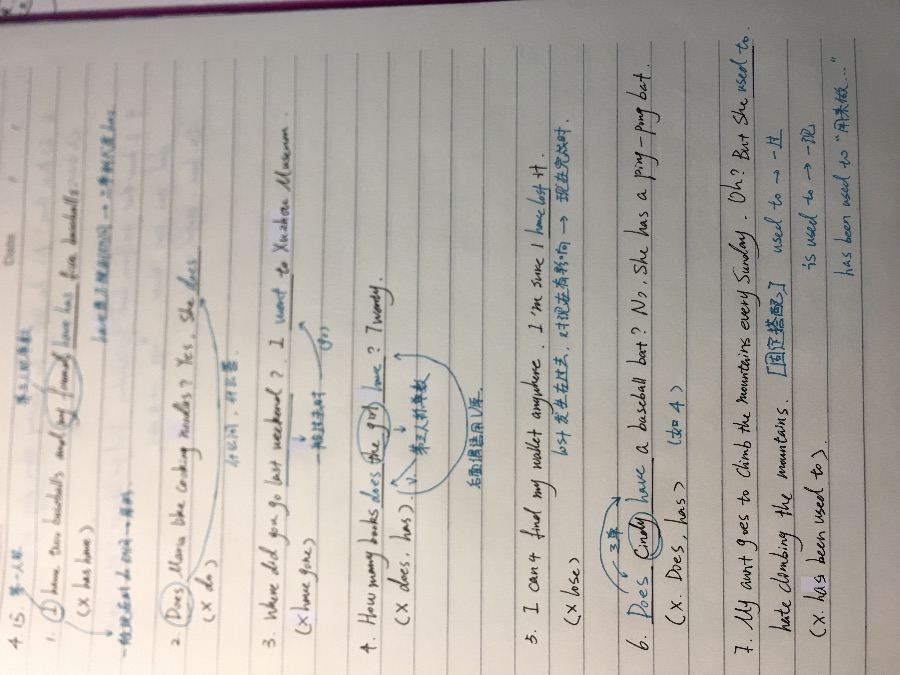 Date
4.15. 第一人称 第三人称单数
1. I have two baseballs and my friend have has five baseballs.
(× has have)
2. Does Maria like cooking noodles? Yes, She does
(× do)
什么问,什么答.
3. Where did you go last weekend? I went to Xuzhou Museum.
(× have gone) 一般过去时 (go)
4. How many books does the girl have? Twenty.
(× does, has). V. 第三人称单数
后面谓语用V原.
5. I can't find my wallet anywhere. I'm sure I have lost it.
(× lose) lost 发生在过去, 对现在有影响 → 现在完成时.
三单
6. Does Cindy have a baseball bat? No, She has a ping-pong bat.
(×. Does, has) (如 4)
7. My aunt goes to climb the mountains every Sunday. Oh? But She used to
hate climbing the mountains. [固定搭配] used to → 一过
(×. has been used to) is used to → 一现
has been used to "用来做..."